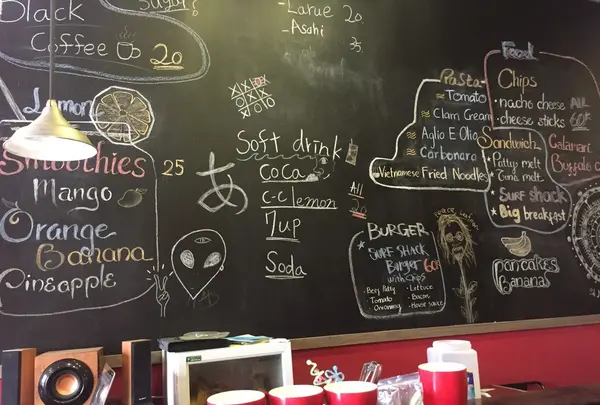 Black
Sugar?
Coffee 20
-Larue 20
-Asahi 35
Lemon
Smoothies 25
Mango
Orange
Banana
Pineapple
あ
Soft drink
Coca
C-C lemon
7up
Soda
All
20
Pasta
Tomato
Clam Cream
Aglio E Olio
Carbonara
Vietnamese Fried Noodles
Food
Chips
nacho cheese
cheese sticks
All
60K
Sandwich
Patty melt
Tuna melt
Surf shack
Big breakfast
Calamari
Buffalo
BURGER
Surf Shack
Burger 60
with chips
Beef Patty
Tomato
Lettuce
Bacon
House sauce
peace
Pancakes
Bananas